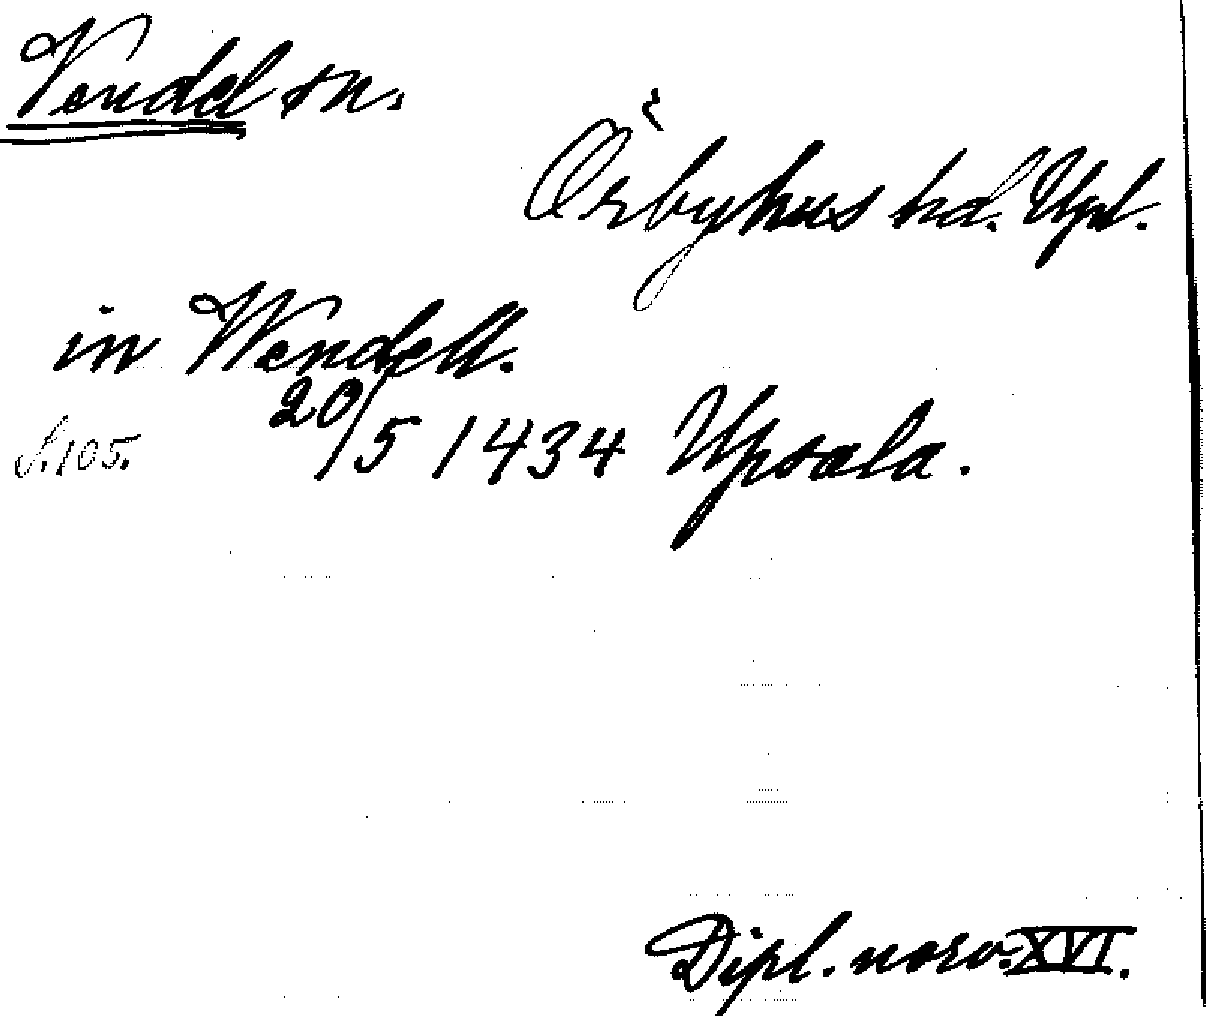 Vendel sn.
Örbyhus hd. Upl.
in Wendell.
S. 105. 20/5 1434 Upsala.
Dipl. norv. XVI.